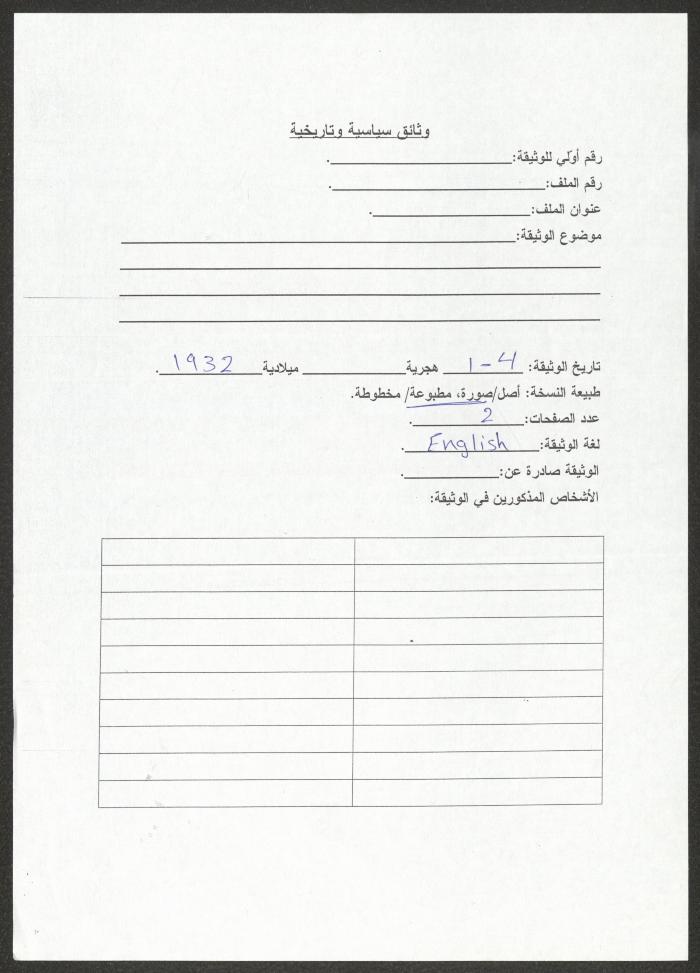 وثائق سياسية وتاريخية
رقم أولي للوثيقة:____________.
رقم الملف:____________.
عنوان الملف:____________.
موضوع الوثيقة:____________
تاريخ الوثيقة: 1-4 هجرية____________ ميلادية 1932.
طبيعة النسخة: أصل/صورة، مطبوعة/ مخطوطة.
عدد الصفحات: 2.
لغة الوثيقة: English.
الوثيقة صادرة عن:____________.
الأشخاص المذكورين في الوثيقة: